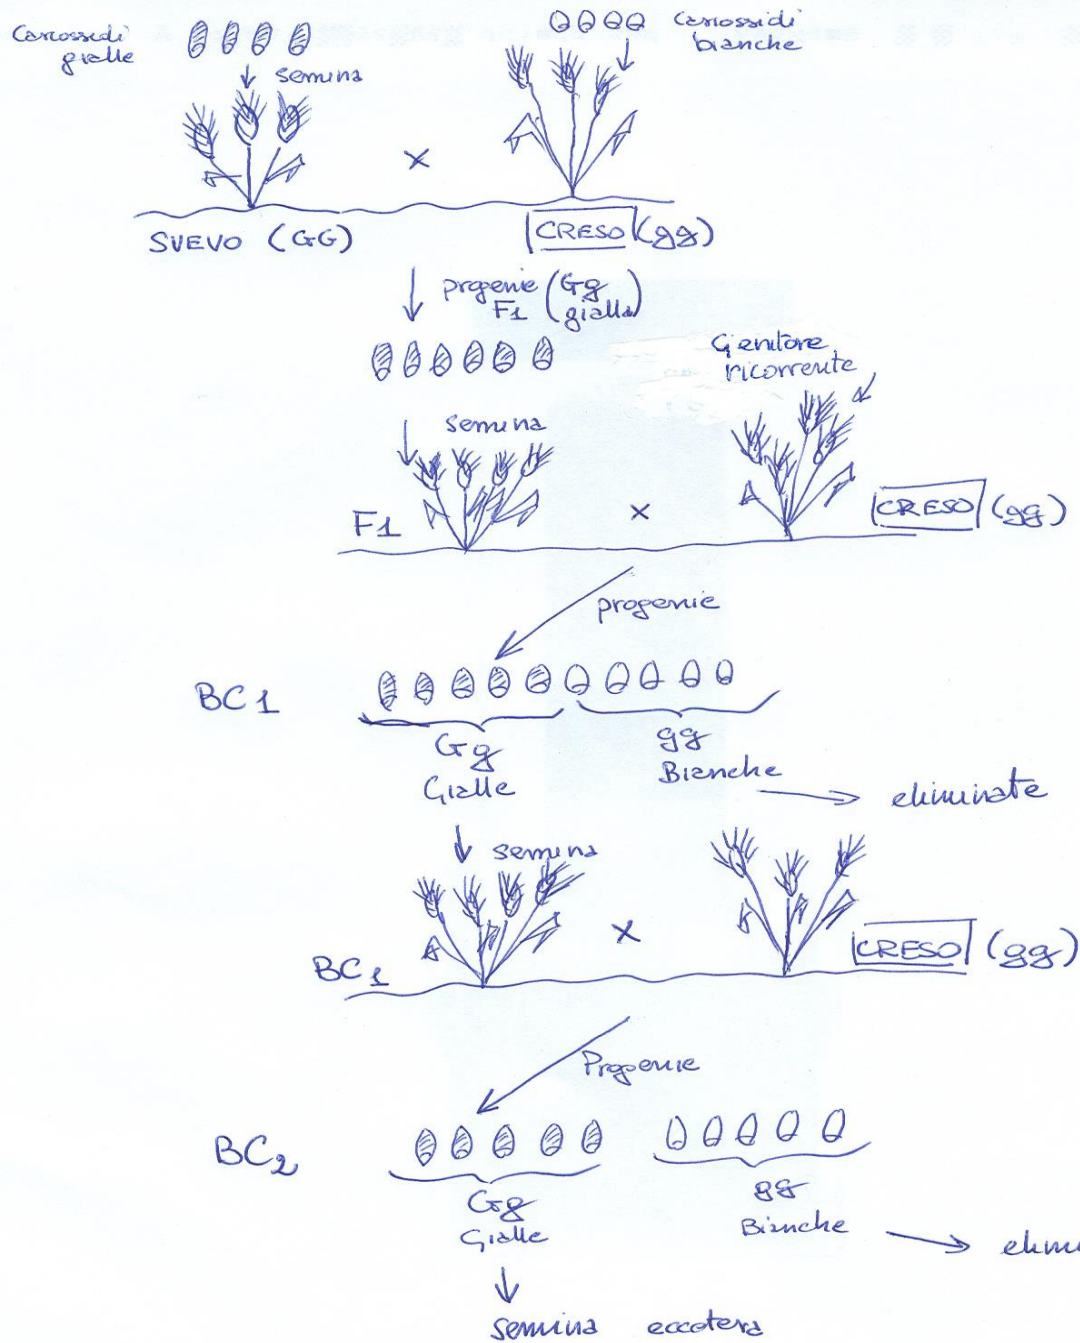 Cariossidi
gialle
Cariossidi
bianche
semina
x
SVEVO (GG)
CRESO (gg)
progenie (Gg
F1 gialla)
Genitore
ricorrente
semina
F1
x
CRESO (gg)
progenie
BC1
Gg
Gialle
gg
Bianche
eliminate
semina
BC1
x
CRESO (gg)
Progenie
BC2
Gg
Gialle
gg
Bianche
elimi
semina eccetera